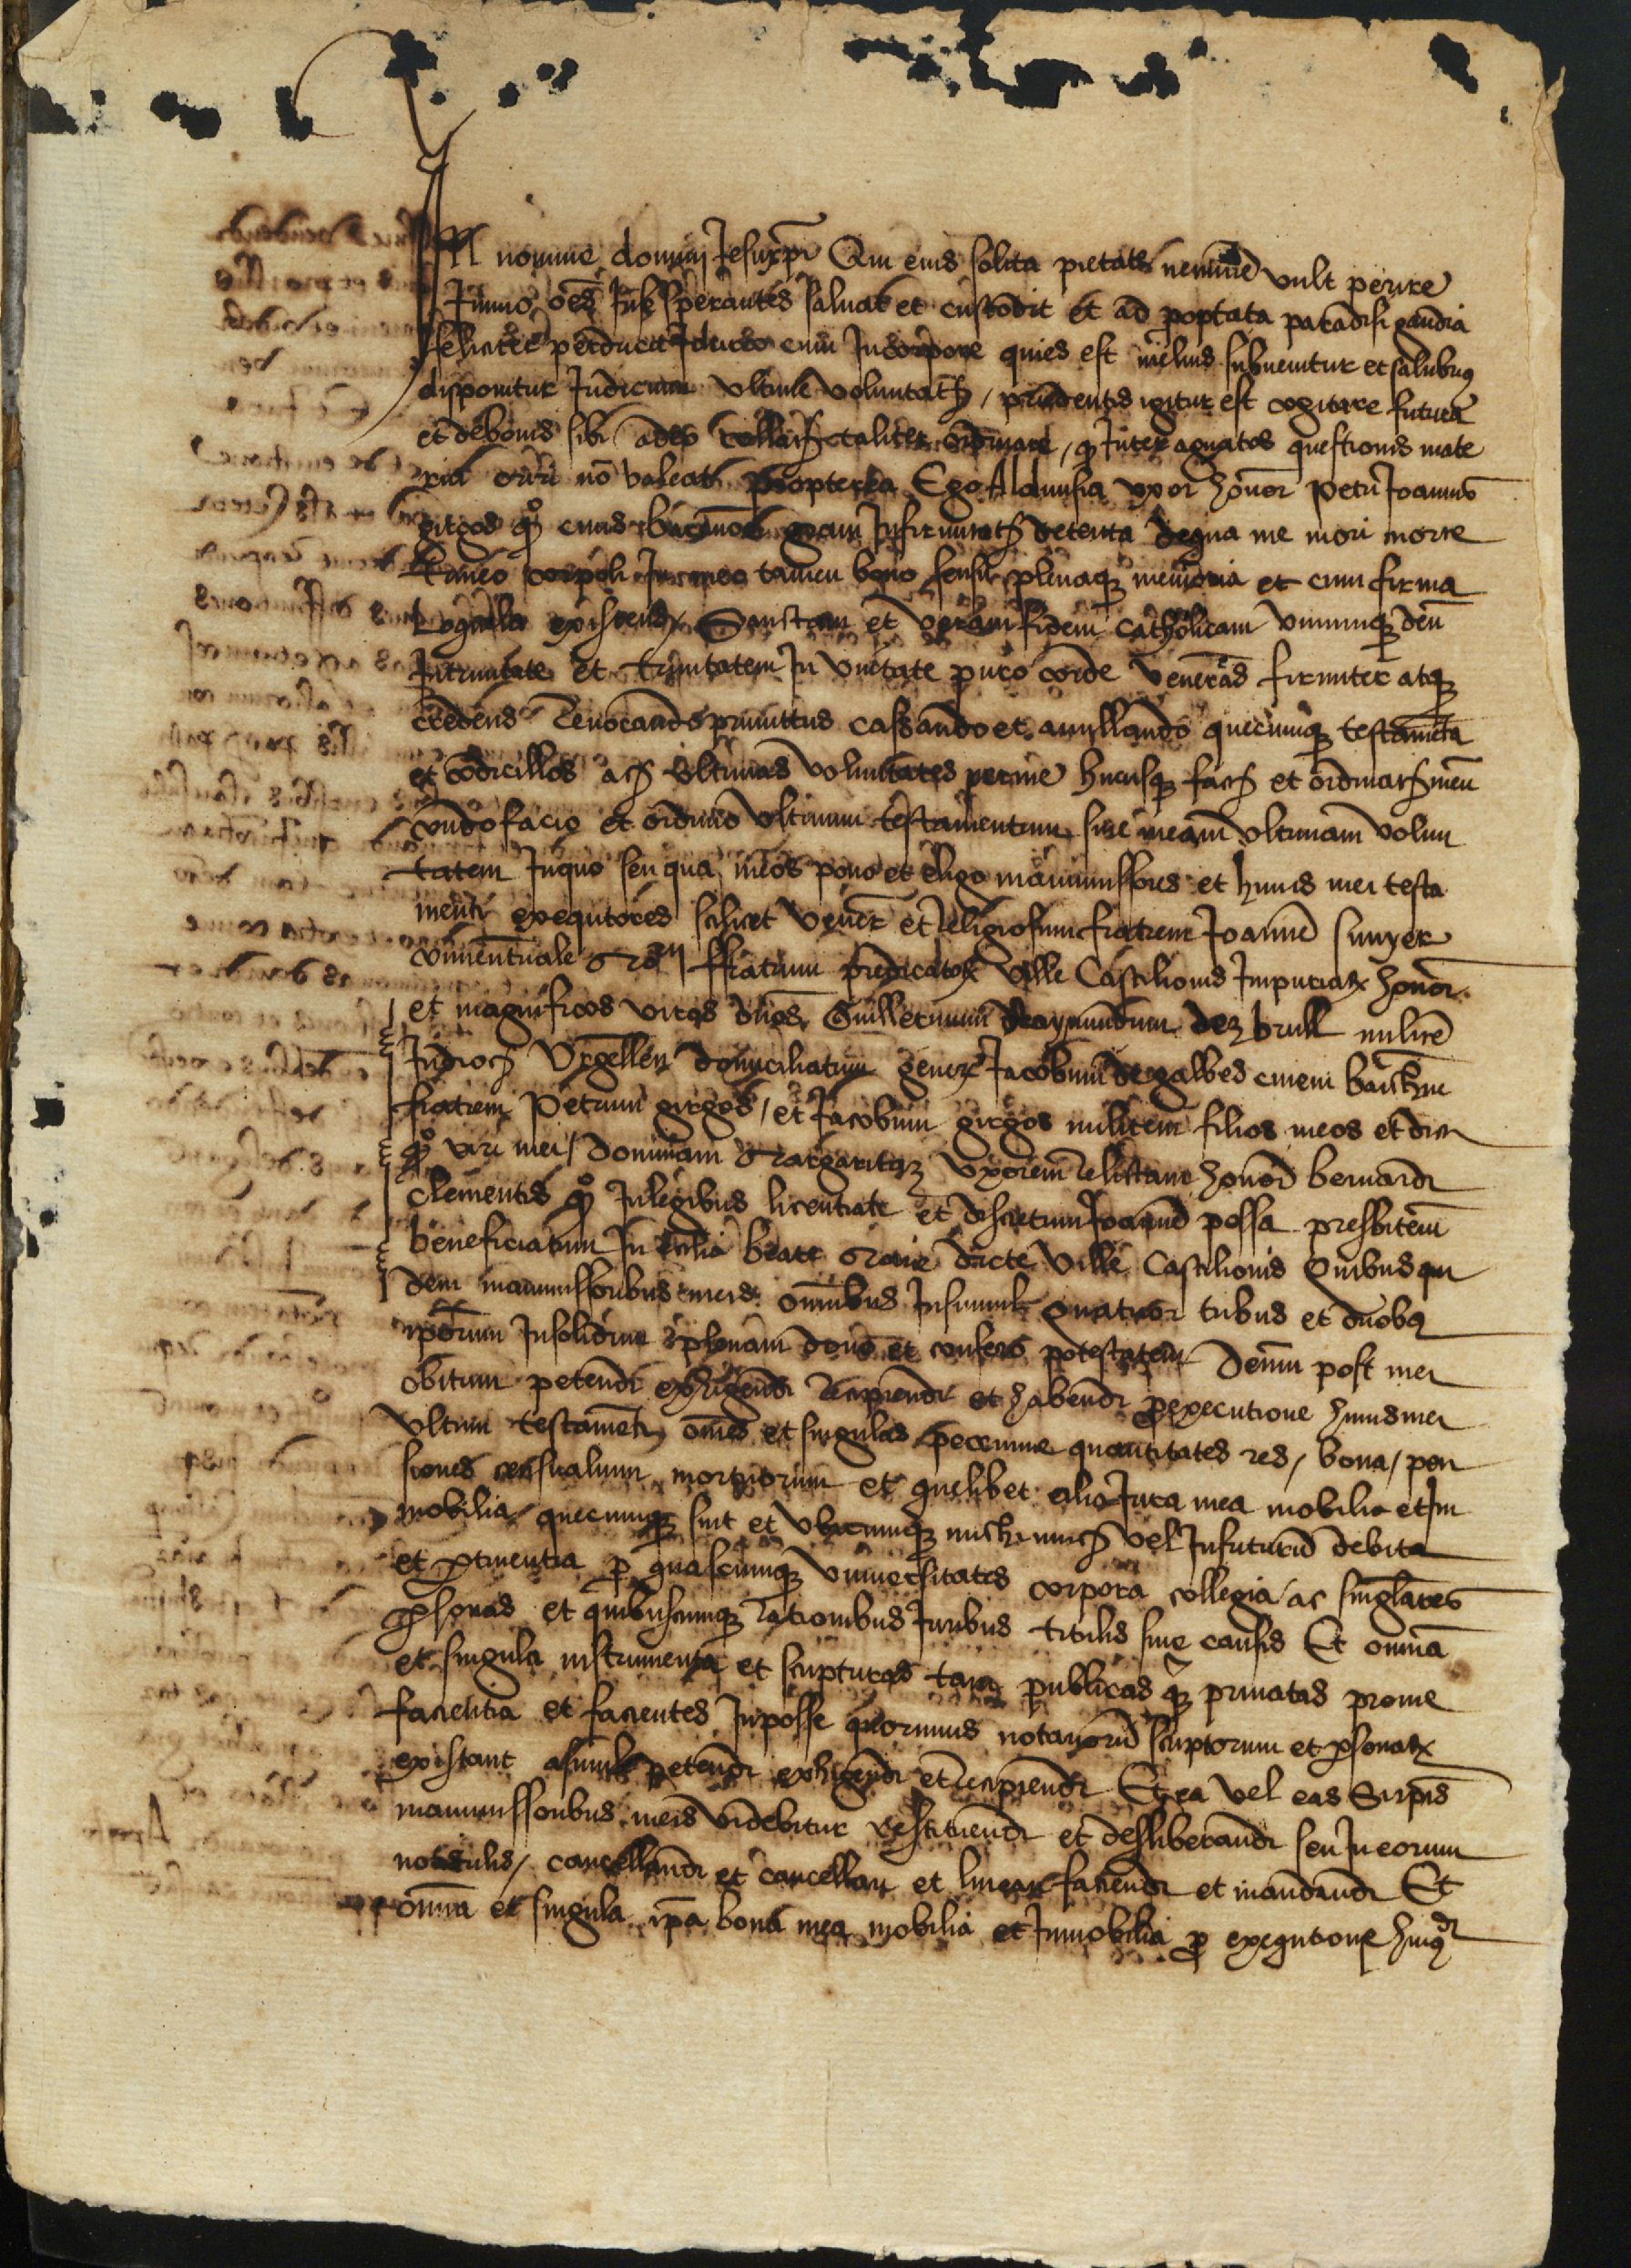 IN nomine domini Jesuxpi Qui eius solita pietate neminem vult perire
Immo oēs In se sperantes saluat et custodit et ad poptata paradisi gaudia
feliciter perducit Idcirco cum In corpore quies est melius subuenitur et salubrius
disponitur Judicium vltime voluntatis / prudentis igitur est cogitare futura
et de bonis sibi a deo collatis taliter ordinare / ꝙ Inter agnatos questionis mate
ria oriri nō valeat Propterea Ego Aldunsia vxor honor Petri Joannis
girgos qº ciuis barcinone graui Infirmitate detenta de qua me mori morte
timeo corpoli In meo tamen bono sensu plenaqꝫ memoria et cum firma
loquela existens Sanctam et veram fidem catholicam vnumqꝫ deū
In trinitate et trinitatem In vnitate puro corde venerans firmiter atqꝫ
credens Reuocando primittus cassando et anullando quecumqꝫ testamēta
et codicillos ac vltimas voluntates per me hucusqꝫ fact et ordinat meū
condo facio et ordino vltimum testamentum siue meam vltimam volun
tatem In quo seu qua meos pono et eligo manumissores et huius mei testa
menti exequtores scilicet vener et Religiosum fratrem Joannē sunyer
conuentuale ordīs ffratrum predicatorꝝ ville Castilionis Impuriarꝝ honor
et magnificos viros dños Guillermum Raymundum dez brull militē
In dioc Vrgellen domiciliatum gener Jacobum de galbes ciuem barchīn
fratrem Petrum girgos / et Jacobum girgos militem filios meos et dict
qº viri mei / dominam Margaritaꝫ vxorem Relictam honor bernardi
clementis qº In legibus licentiate et discretum Joannē possa presbiterū
beneficiatum In ecclia beate Marie dicte ville Castilionis Quibusqui
dem manumissoribus meis omībus In simul quatuor tribus et duobꝫ
ipsorum In solidum plenam dono et confero potestatem Demū post mei
obitum petendi exhigendi Recipiendi et habendi pro executione huius mei
vltimi testamēti omēs et singulas peccunie quantitates res / bona / pen
siones censualium mortuorum et quelibet alia Jura mea mobilia et Im
mobilia quecumqꝫ sint et vbicumqꝫ michi nunc vel In futurū debita
et ꝑtinentia ꝑ quascumqꝫ vniuersitates corpora collegia ac singlares
ꝑsonas et quibuscumqꝫ Rationibus Juribus titulis siue causis Et omniā
et singula instrumenta et scripturas tam publicas qꝫ priuatas pro me
facientia et facientes In posse quorumuis notariorū scriptorum et ꝑsonarꝝ
existant asimili petendi exhigendi et Recipiendi Et ea vel eas Si ipīs
manumissoribus meis videbitur Restituendi et desliberandi seu In eorum
not ulis / cancellandi et cancellari et linear faciendi et mandandi Et
omīa et singula ipā bona mea mobilia et Inmobilia ꝓ exequtione huiꝫ